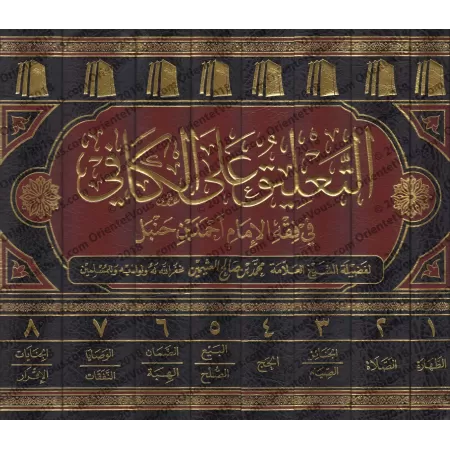 التعليق على الكافي
في فقه الإمام أحمد بن حنبل
لفضيلة الشيخ العلامة محمد بن صالح العثيمين غفر الله له ولوالديه وللمسلمين
١ ٢ ٣ ٤ ٥ ٦ ٧ ٨
الطهارة الصلاة الجنائز الحج البيع الضمان الوصايا الجنايات
الصيام الصلح الهبة النفقات الإقرار